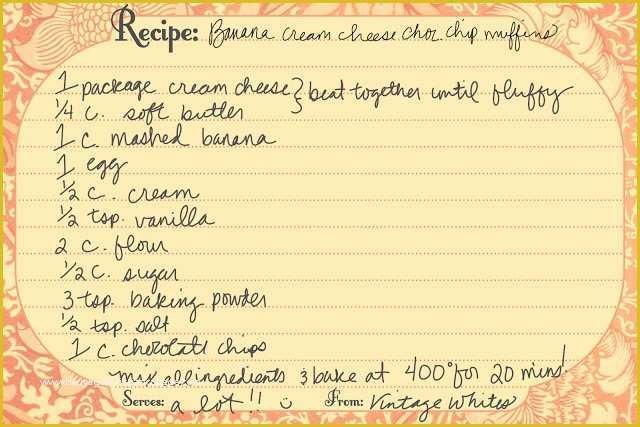 Recipe: Banana cream cheese choc chip muffins
1 package cream cheese } beat together until fluffy
1/4 c. soft butter
1 c. mashed banana
1 egg
1/2 c. cream
1/2 tsp. vanilla
2 c. flour
1/2 c. sugar
3 tsp. baking powder
1/2 tsp. salt
1 c. chocolate chips
mix all ingredients & bake at 400° for 20 mins!
Serves: a lot!! From: Vintage Whites